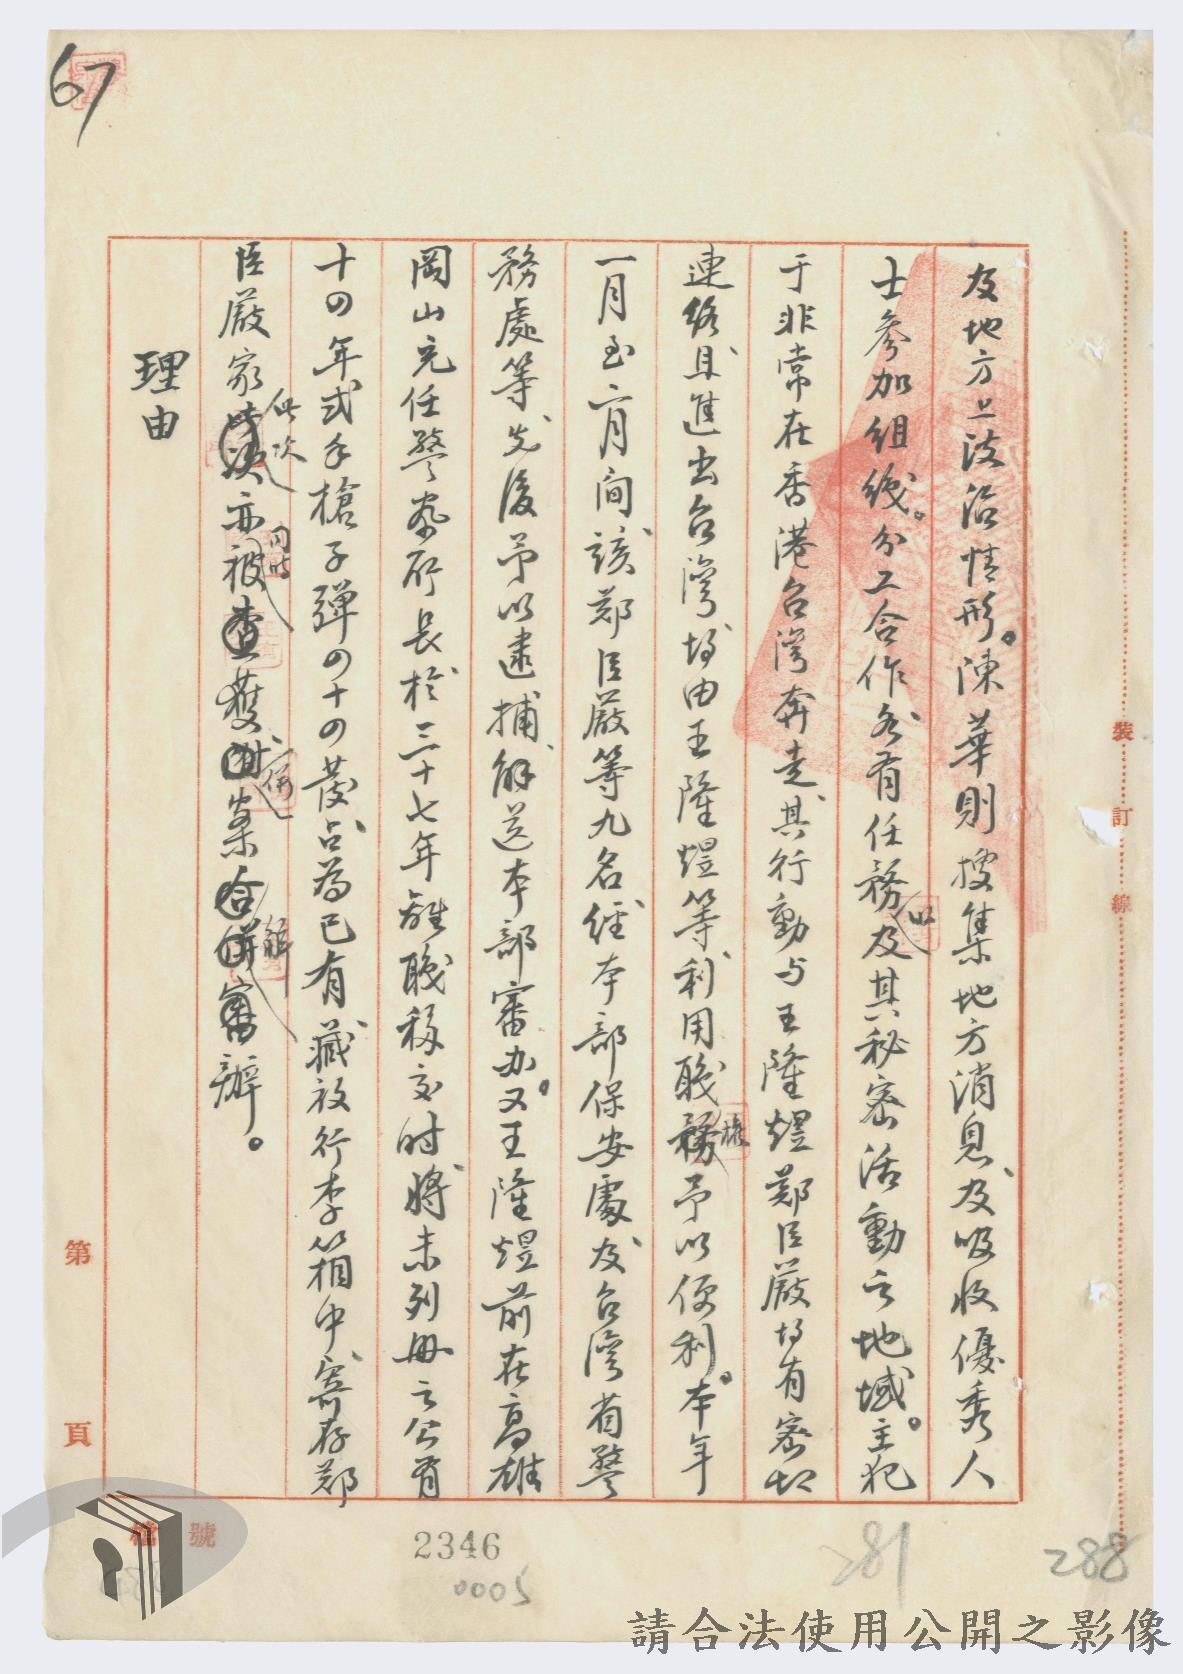 67
及地方上政治情形。陳華則搜集地方消息、及吸收優秀人
士參加組織。分工合作各有任務及以其秘密活動之地域。主犯
于非常在香港台灣奔走、其行動与王隆煜鄭臣嚴均有密切
連絡、且進出台灣、均由王隆煜等、利用職權予以便利。本年
一月至六月間、該鄭臣嚴等九名、經本部保安處、及台灣省警
務處等、先後予以逮捕、解送本部審办。又王隆煜前在高雄
岡山充任警察所長、於三十七年離職移交時、將未列冊之公有
十四年式手槍子彈四十四發、占為己有、藏被行李箱中、寄存鄭
臣嚴家、此次亦被同時查獲、一併解辦。
理由
裝
訂
線
第
頁
檔號
2346
0005
281
288
請合法使用公開之影像